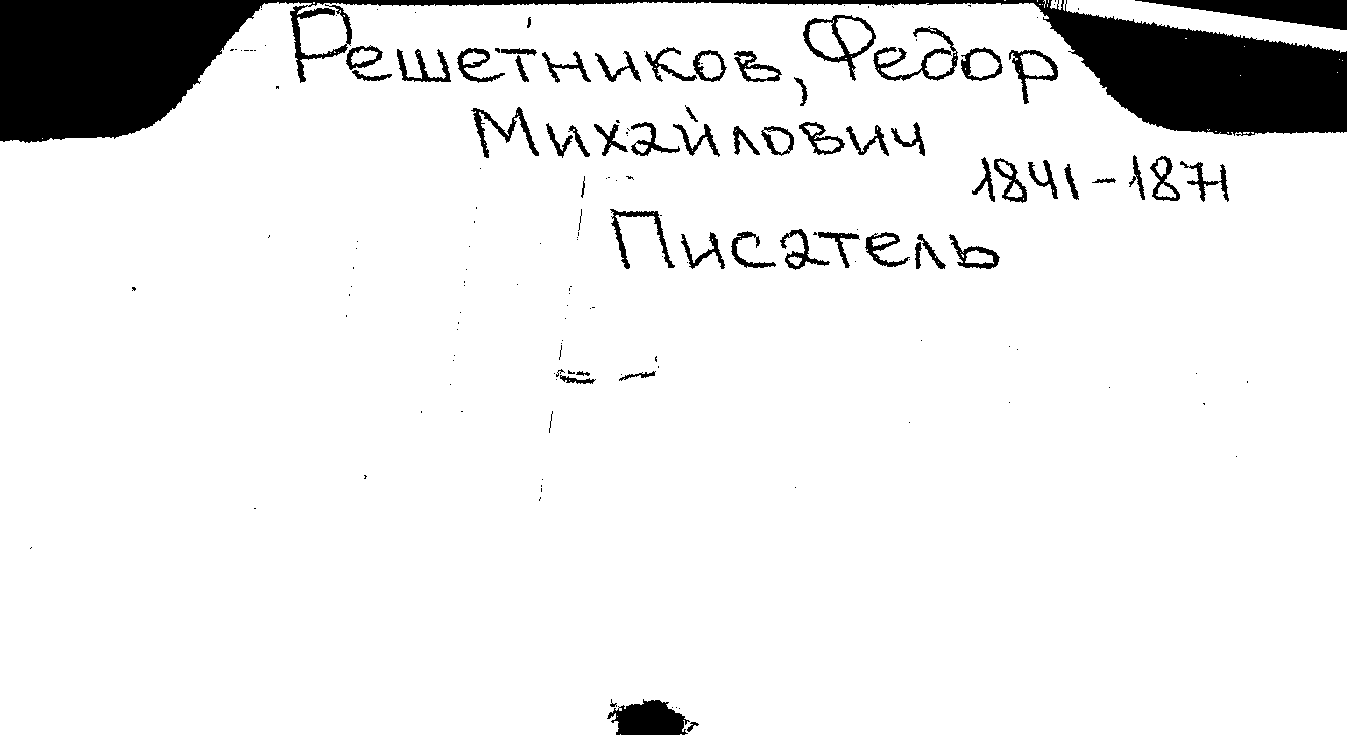 Решетников, Федор
Михайлович
1841-1871
Писатель